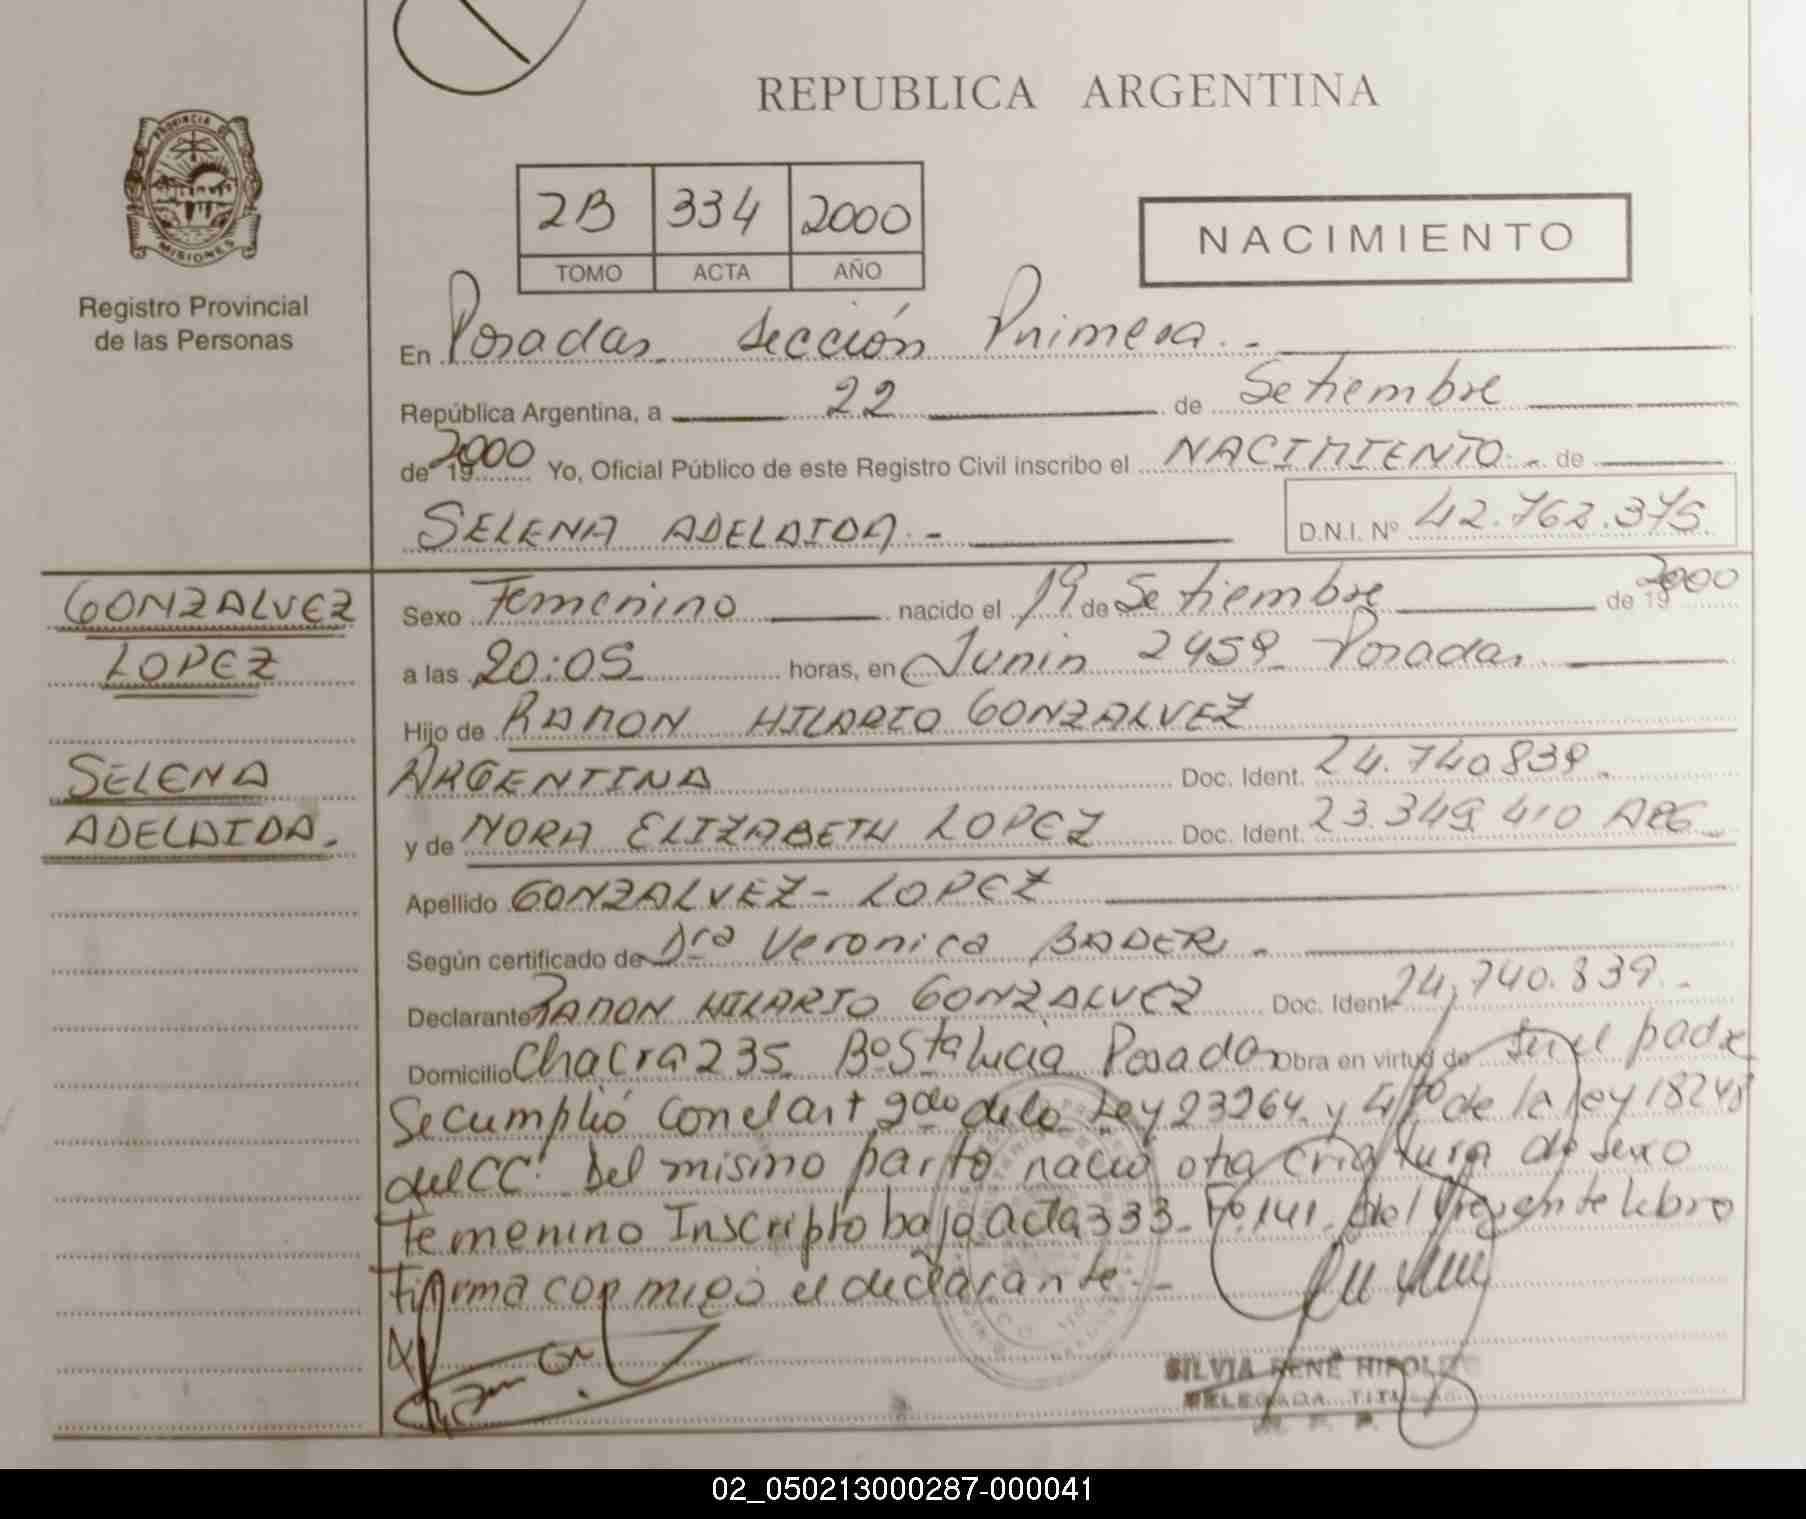 REPUBLICA ARGENTINA
PROVINCIA DE
MISIONES
Registro Provincial
de las Personas
2B 334 2000
TOMO ACTA AÑO
NACIMIENTO
En Posadas Sección Primera.-
República Argentina, a 22 de Setiembre
de 2000 19 Yo, Oficial Público de este Registro Civil inscribo el NACIMIENTO.- de
SELENA ADELAIDA.- D.N.I. Nº 42.762.375.
GONZALVEZ
LOPEZ
SELENA
ADELAIDA.
Sexo Femenino nacido el 19 de Setiembre de 19 2000
a las 20:05 horas, en Junin 2459 Posadas
Hijo de RAMON HILARIO GONZALVEZ
ARGENTINA Doc. Ident. 24.740.839.
y de NORA ELIZABETH LOPEZ Doc. Ident. 23.349.410 ARG
Apellido GONZALVEZ - LOPEZ
Según certificado de Dra Veronica BADER -
Declarante RAMON HILARIO GONZALVEZ Doc. Ident. 24.740.839.-
Domicilio Chacra 235 Bº Sta Lucia Posadas Obra en virtud de ser el padre
Se cumplió con el art 2do de la Ley 23264 y 4to de la ley 18248
del CC. Del mismo parto nació otra criatura de sexo
femenino Inscripto bajo acta 333 - Fº 141 - del presente libro
Firma con migo el declarante.-
SILVIA RENÉ HIPOLI
DELEGADA TITULAR
R. P. P.
02_050213000287-000041